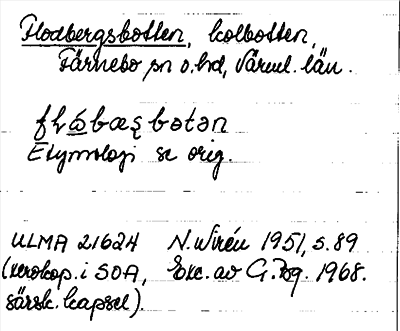 Flodbergsbotten, kolbotten,
Färnebo sn o. hd, Värml. län.
Etymologi se orig.
ULMA 21624 N. Wirén 1951, s. 89
(xerokop. i SOA, Exc. av G. Bg. 1968.
särsk. kapsel).